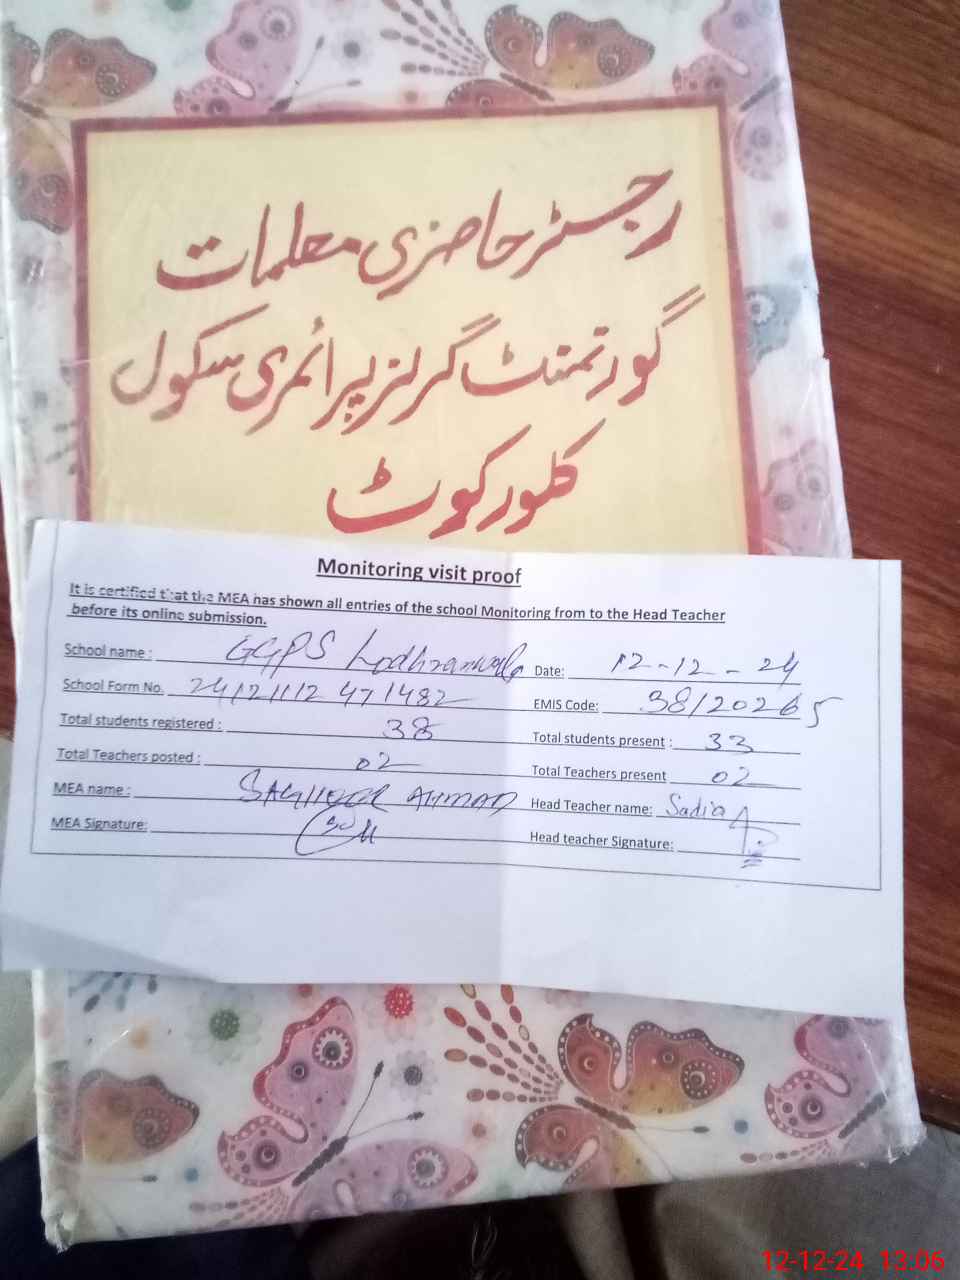 رجسٹر حاضری معلمات
گورنمنٹ گرلز پرائمری سکول
کلورکوٹ
Monitoring visit proof
It is certified that the MEA has shown all entries of the school Monitoring from to the Head Teacher
before its online submission.
School name : GGPS Lodhranwala Date: 12-12-24
School Form No. EMIS Code: 38120265
Total students registered : 38 Total students present : 33
Total Teachers posted : 02 Total Teachers present 02
MEA name : SAGHEER AHMAD Head Teacher name: Sadia
MEA Signature: Head teacher Signature:
12-12-24 13:06